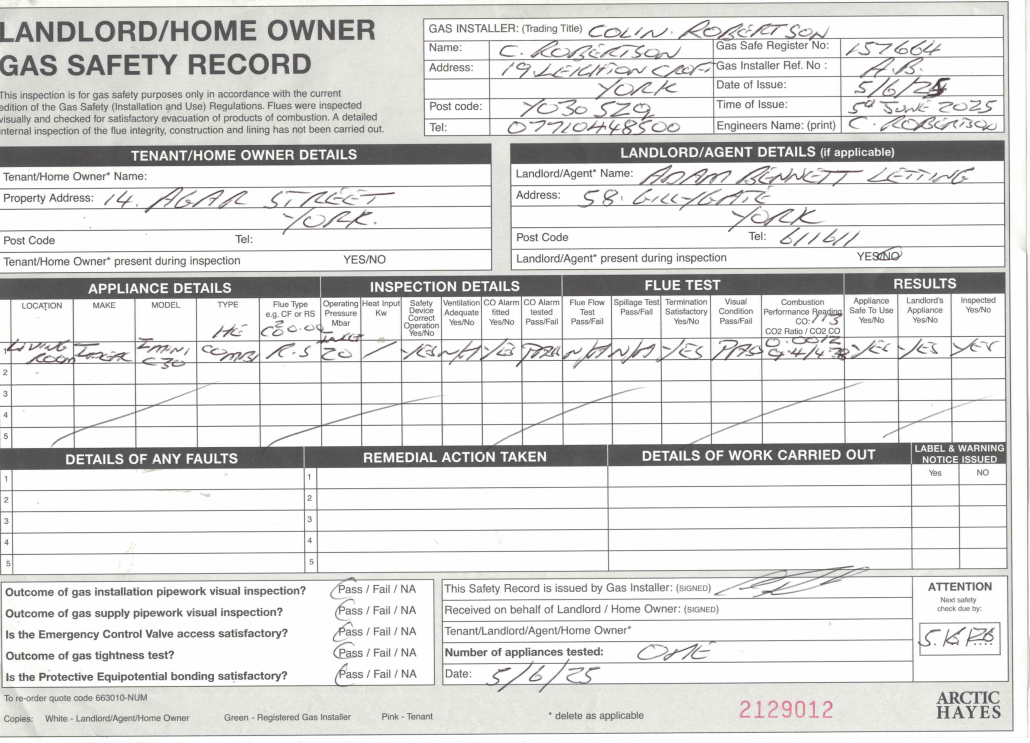 LANDLORD/HOME OWNER
GAS SAFETY RECORD
This inspection is for gas safety purposes only in accordance with the current
edition of the Gas Safety (Installation and Use) Regulations. Flues were inspected
visually and checked for satisfactory evacuation of products of combustion. A detailed
internal inspection of the flue integrity, construction and lining has not been carried out.
GAS INSTALLER: (Trading Title) COLIN. ROBERTSON
Name: C. ROBERTSON Gas Safe Register No: 157664
Address: 19. LEIGHTON CROFT Gas Installer Ref. No : A.B.
YORK Date of Issue: 5/6/25
Post code: YO30 5ZQ Time of Issue: 5th JUNE 2025
Tel: 07710448500 Engineers Name: (print) C. ROBERTSON
TENANT/HOME OWNER DETAILS
Tenant/Home Owner* Name:
Property Address: 14. AGAR STREET
YORK.
Post Code Tel:
Tenant/Home Owner* present during inspection YES/NO
LANDLORD/AGENT DETAILS (if applicable)
Landlord/Agent* Name: ADAM BENNETT LETTING
Address: 58. GILLYGATE
YORK
Post Code Tel: 611611
Landlord/Agent* present during inspection YES/NO
APPLIANCE DETAILS INSPECTION DETAILS FLUE TEST RESULTS
LOCATION MAKE MODEL TYPE Flue Type e.g. CF or RS Operating Pressure Mbar Heat Input Kw Safety Device Correct Operation Yes/No Ventilation Adequate Yes/No CO Alarm fitted Yes/No CO Alarm tested Pass/Fail Flue Flow Test Pass/Fail Spillage Test Pass/Fail Termination Satisfactory Yes/No Visual Condition Pass/Fail Combustion Performance Reading CO: 113 CO2 Ratio / CO2 CO Appliance Safe To Use Yes/No Landlord's Appliance Yes/No Inspected Yes/No
HE
LIVING ROOM C30 COMBI R.S 20 / YES N/A YES PASS N/A N/A YES PASS 0.0012 YES YES YES
2
3
4
5
DETAILS OF ANY FAULTS REMEDIAL ACTION TAKEN DETAILS OF WORK CARRIED OUT LABEL & WARNING NOTICE ISSUED
Yes NO
1 1
2 2
3 3
4 4
5 5
Outcome of gas installation pipework visual inspection? Pass / Fail / NA
Outcome of gas supply pipework visual inspection? Pass / Fail / NA
Is the Emergency Control Valve access satisfactory? Pass / Fail / NA
Outcome of gas tightness test? Pass / Fail / NA
Is the Protective Equipotential bonding satisfactory? Pass / Fail / NA
This Safety Record is issued by Gas Installer: (SIGNED)
Received on behalf of Landlord / Home Owner: (SIGNED)
Tenant/Landlord/Agent/Home Owner*
Number of appliances tested: ONE
Date: 5/6/25
ATTENTION
Next safety
check due by:
5.6.26
To re-order quote code 663010-NUM
Copies: White - Landlord/Agent/Home Owner Green - Registered Gas Installer Pink - Tenant * delete as applicable
2129012
ARCTIC
HAYES